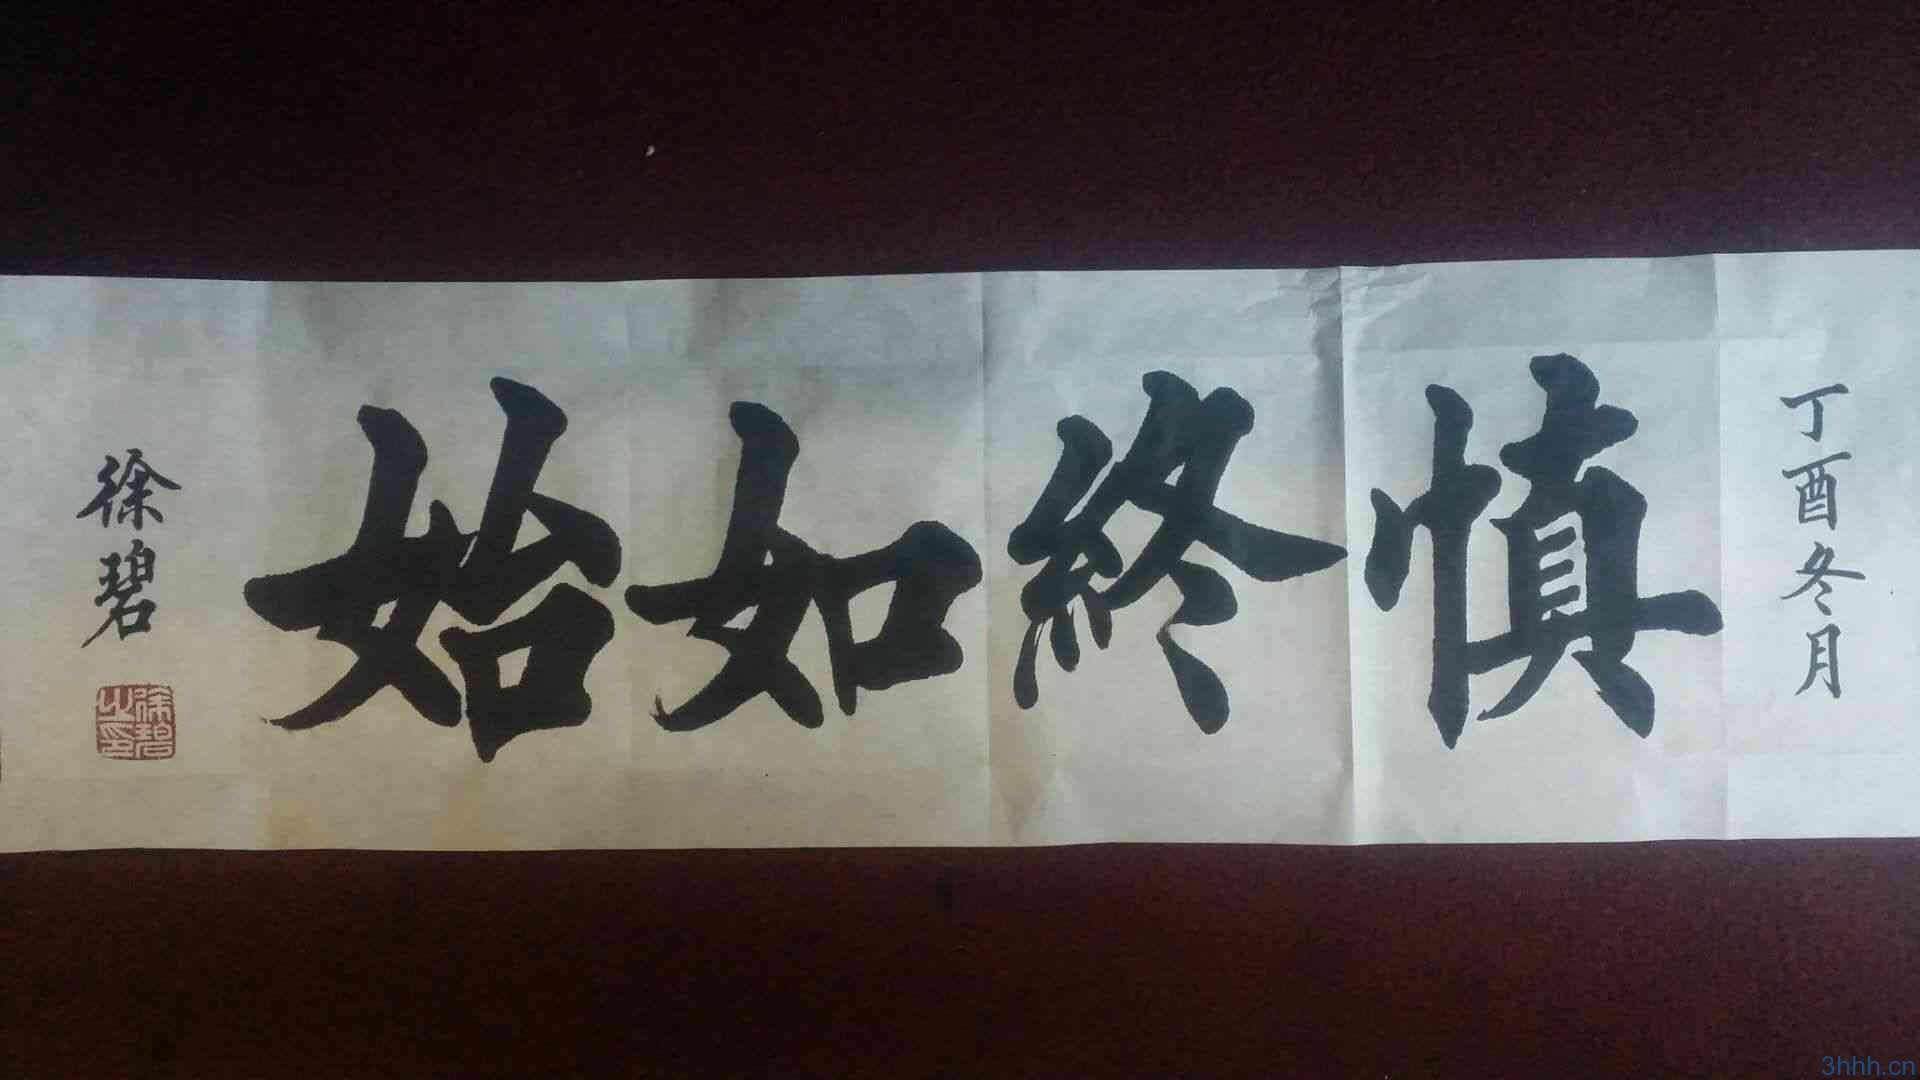 丁酉冬月
慎終如始
徐碧
徐碧之印
3hhh.cn